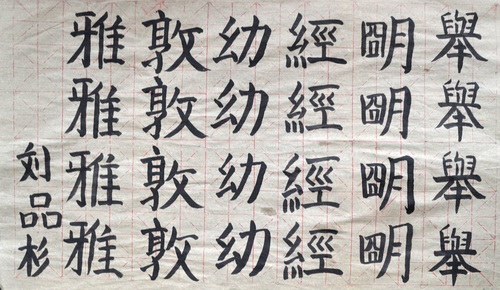 舉舉舉舉
朙朙朙朙
經經經經
幼幼幼幼
敦敦敦敦
雅雅雅雅
刘品杉